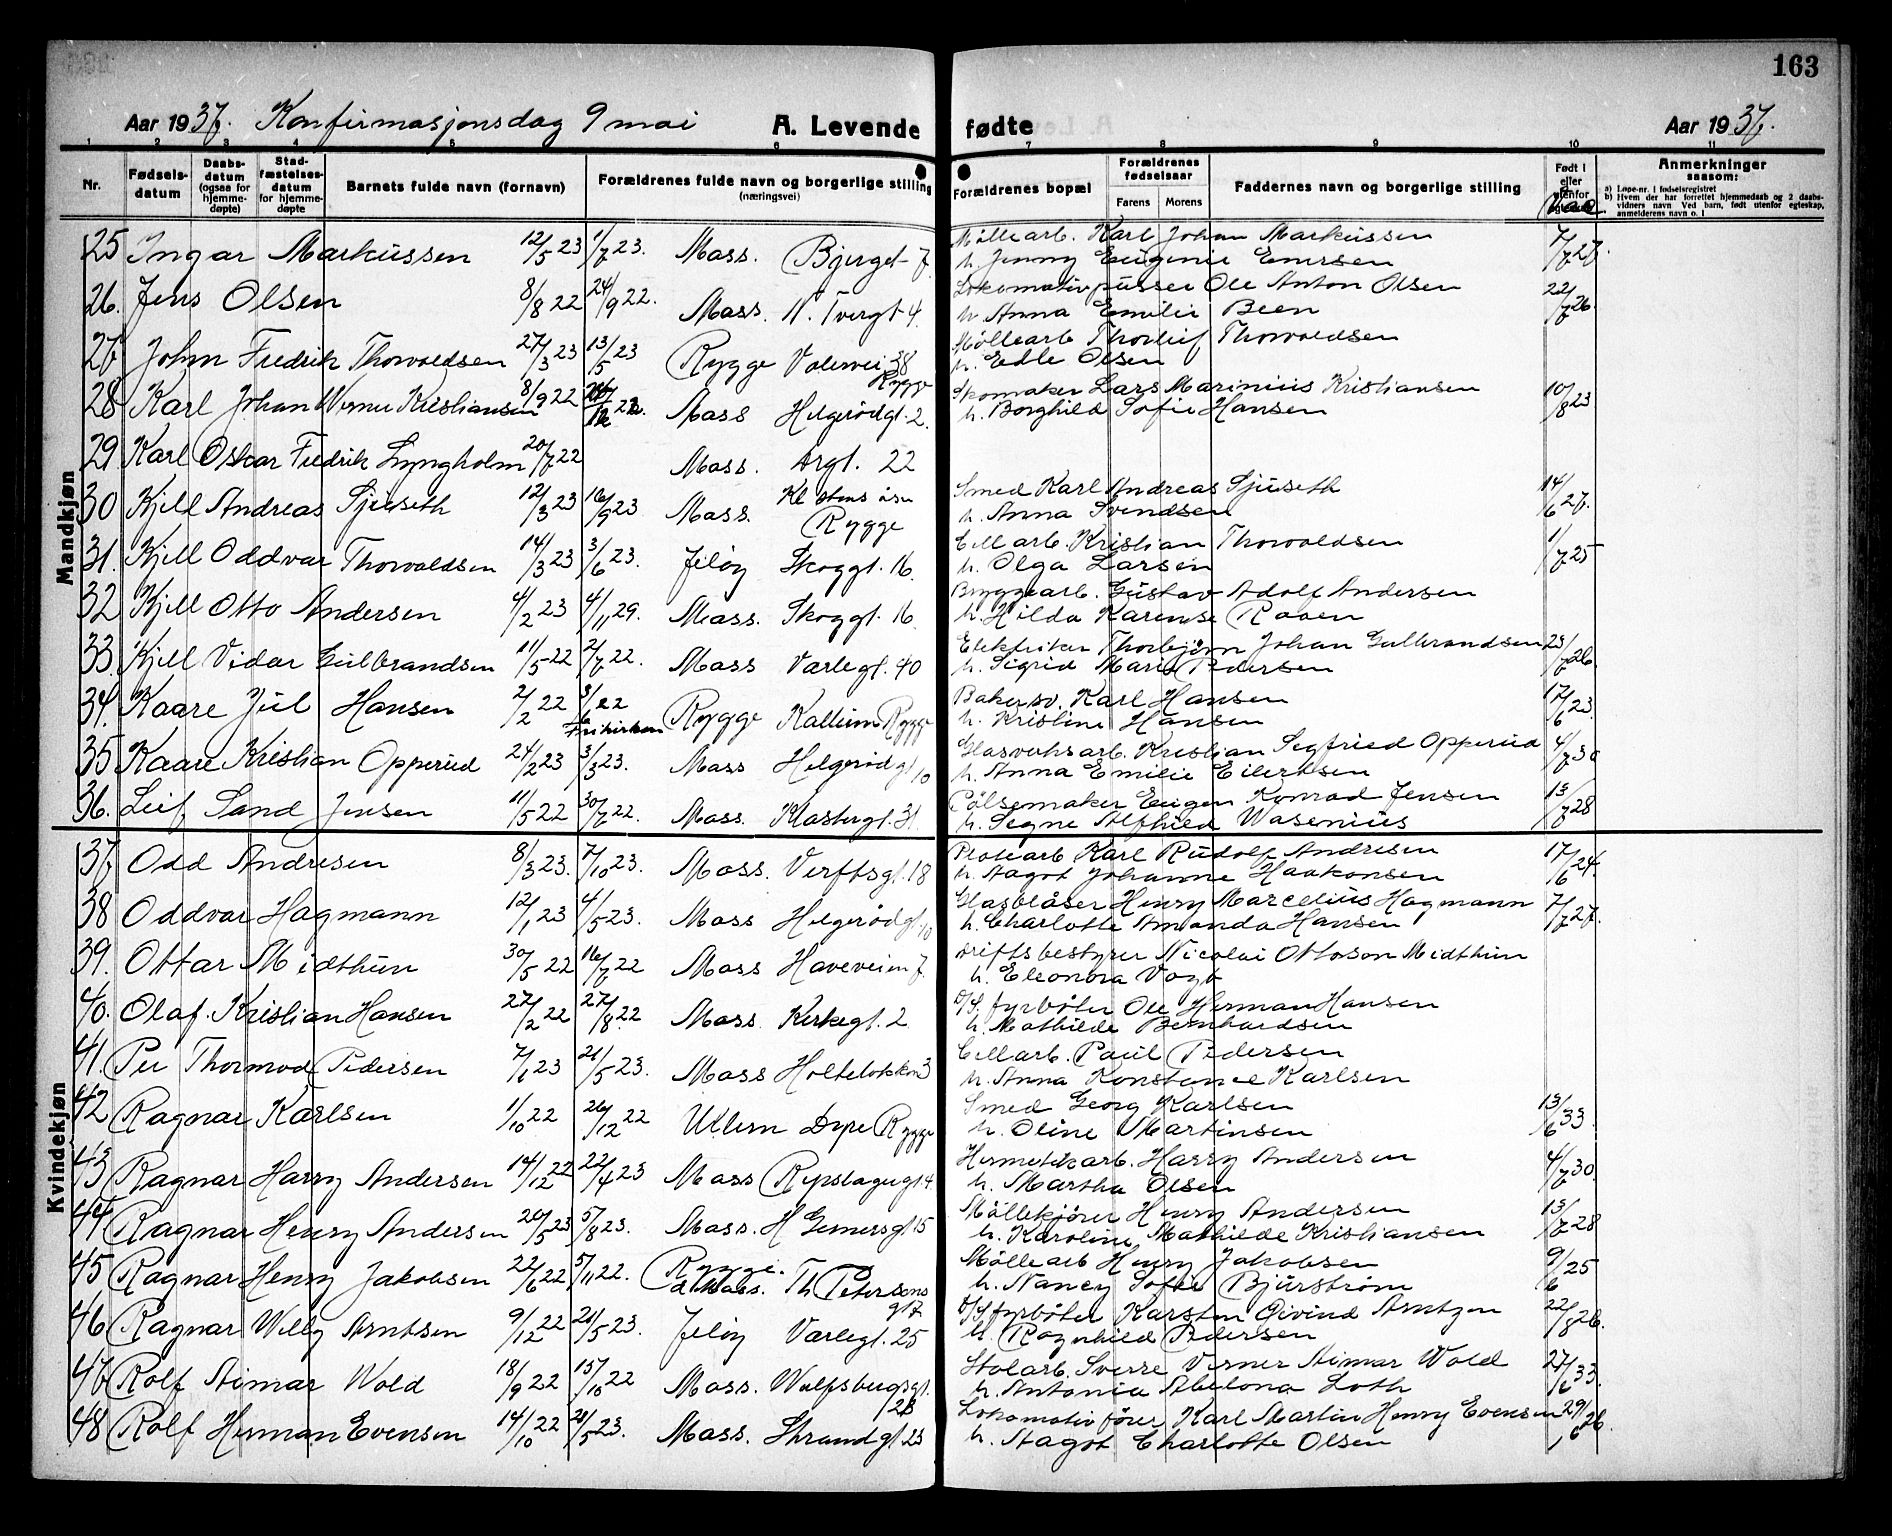 163
Aar 1937. Konfirmasjonsdag 9 mai A. Levende fødte Aar 1937.
1 2 3 4 5 6 7 8 9 10 11
Nr. Fødselsdatum Daabsdatum (ogsaa for hjemmedøpte) Stadfæstelsesdatum for hjemmedøpte Barnets fulde navn (fornavn) Forældrenes fulde navn og borgerlige stilling (næringsvei) Forældrenes bopæl Forældrenes fødselsaar Farens Morens Faddernes navn og borgerlige stilling Født i eller utenfor Anmerkninger saasom:
a) Løpe-nr. i fødselsregistret
b) Hvem der har forrettet hjemmedaab og 2 daabsvidners navn Ved barn, født utenfor egteskap, anmelderens navn o. l
Mandkjøn
25 Ingar Markussen 12/5 23 1/7 23. Moss. Bjerget 7 Møllearb. Karl Johan Markussen 7/7 27.
h. Jenny Eugenie Emrsen
26. Jens Olsen 8/8 22 24/9 22. Moss. N. Tvergt 4. Lokomotivpusser Ole Anton Olsen 22/7 26.
h. Anna Emilie Been
27 John Fredrik Thorvaldsen 27/3 23 13/5 23 Rygge Valervei 38 Rygge Møllearb Thorleif Thorvaldsen
h. Edle Olsen
28 Karl Johan Werner Kristiansen 8/9 22 Moss Helgerødgt. 2. Skomaker Lars Marinius Kristiansen 10/8 23
h. Borghild Sofie Hansen
29 Karl Oskar Fredrik Lyngholm 20/7 22 Moss. Argt. 22
30 Kjell Andreas Sjuseth 12/3 23 16/9 23 Moss. Rygge Smed Karl Andreas Sjuseth 14/6 27.
h. Anna Svendsen
31. Kjell Oddvar Thorvaldsen 14/3 23 3/6 23. Jeløy Skoggt. 16. Cell arb. Kristian Thorvaldsen 1/7 25
h. Olga Larsen
32 Kjell Otto Andersen 4/2 23 4/11 29. Moss. Skoggt. 16. Bryggearb. Gustav Adolf Andersen
h. Hilda Karense Raaen
33. Kjell Vidar Gulbrandsen 11/5 22 2/7 22. Moss Varlegt. 40 Elektriker Thorbjørn Johan Gulbrandsen 23/7 26.
h. Sigrid Marie Pedersen
34. Kaare Jul Hansen 2/2 22 3/6 22 Frikirken Rygge Kallum Rygge Bakersv. Karl Hansen 17/6 23.
h. Kristine Hansen
35 Kaare Kristian Opperud 24/2 23 3/3 23. Moss Helgerødgt 10 Glasverksarb. Kristian Segfried Opperud 4/7 30
h. Anna Emilie Eilertsen
36. Leif Sand Jensen 11/5 22 30/7 22. Moss. Klostergt. 31. Pølsemaker Eugen Konrad Jensen 13/7 28
h. Segne Alfhild Wasenius
Kvindekjøn
37 Odd Andresen 8/3 23. 7/10 23. Moss. Verftsgt. 18 Platearb Karl Rudolf Andresen 17/6 24.
h. Aagot Johanne Haakonsen
38 Oddvar Hagmann 12/1 23 4/5 23. Moss Helgerødgt 10 Glasblåser Henry Marcelius Hagmann 7/7 27.
h. Charlotte Amanda Hansen
39. Ottar Midthun 30/5 22 16/7 22 Moss Haveveien 7. Driftsbestyrer Nicolai Ottoson Midthun
h. Eleonora Vogt
40. Olaf. Kristian Hansen 27/2 22 27/8 22 Moss Kirkegt. 2 D/S. fyrbøter Ole Herman Hansen
h. Mathilde Bernhardsen
41. Per Thormod Pedersen 7/1 23 21/5 23. Moss Holteløkken 3 Cellarb. Paul Pedersen
h. Anna Konstanse Karlsen
42 Ragnar Karlsen 1/10 22 26/12 22 Ullern Dype Rygge Smed Georg Karlsen 13/6 33
h. Oline Martinsen
43 Ragnar Harry Andersen 14/12 22 22/4 23 Moss Repslagergt 4. Hermetikarb. Harry Andersen 4/7 30
h. Martha Olsen
44 Ragnar Henry Andersen 20/5 23 5/8 23. Moss. H Gerners gt 15 Møllekjører Henry Andersen 13/7 28
h. Karoline Mathilde Kristiansen
45 Ragnar Henry Jakobsen 22/6 22 5/11 22. Rygge. Moss. Th Petersons gt 7 Møllearb Henry Jakobsen 9/6 25
h. Nancy Sofie Bjurstrøm
46 Ragnar Willy Arntsen 9/12 22 21/5 23. Jeløy Varlegt. 25 D/S fyrbøter Karsten Øivind Arntzen 22/8 26.
h. Ragnhild Pedersen
47 Rolf Aimar Wold 18/9 22 15/10 22 Moss. Wulfsbergsgt. 2B Stolarb. Sverre Verner Aimar Wold 27/6 33.
h. Antonia Abelona Loth
48 Rolf Herman Evensen 14/10 22 21/5 23. Moss. Strandgt 23 Lokomotivfører Karl Martin Henry Evensen 29/6 26.
h. Aagot Charlotte Olsen